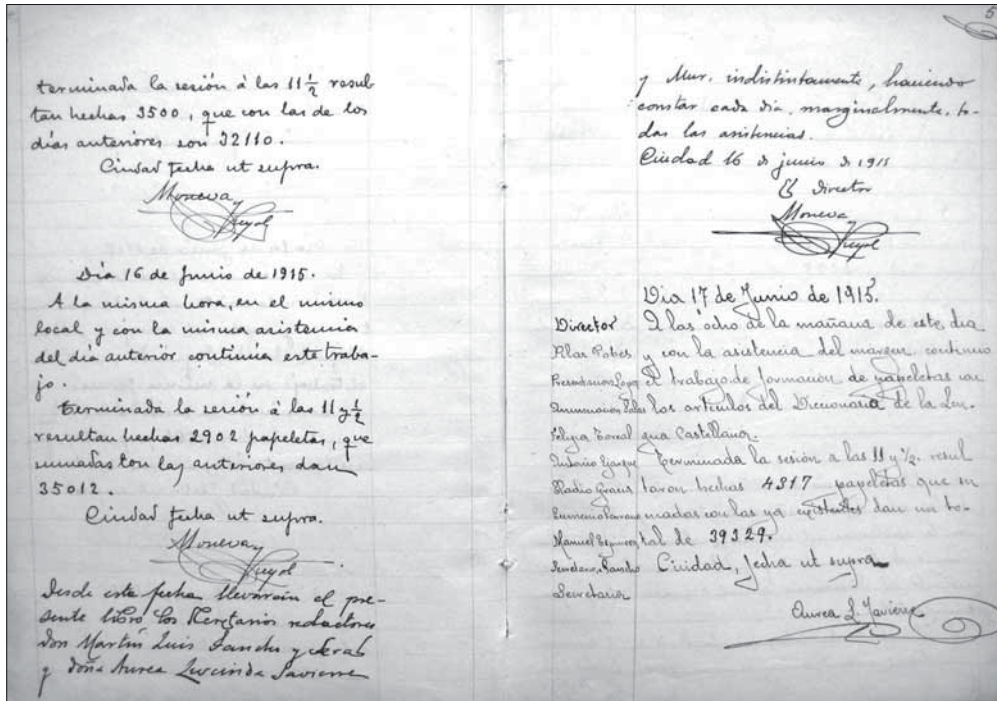 terminada la sesión à las 11 ½ resul
tan hechas 3500, que con las de los
días anteriores son 32110.
Ciudad fecha ut supra.
Moneva y
Puyol
Día 16 de Junio de 1915.
A la misma hora, en el mismo
local y con la misma asistencia
del día anterior continúa este traba-
jo.
Terminada la sesión à las 11 y ½
resultan hechas 2902 papeletas, que
sumadas con las anteriores dan
35012.
Ciudad fecha ut supra.
Moneva y
Puyol
Desde esta fecha llevarán el pre-
sente libro los Secretarios redactores
don Martín Luis Sancho y Seral
y doña Aurea Lucinda Javierre
5
y Mur, indistintamente, haciendo
constar cada día, marginalmente, to-
das las asistencias.
Ciudad 16 de junio de 1915
El Director
Moneva y
Puyol
Dia 17 de Junio de 1915.
Director A las ocho de la mañana de este dia
Pilar y con la asistencia del margen continuo
el trabajo de formación de papeletas con
los articulos del Diccionario de la Len-
Felipa gua Castellana.
Antonio Gargue Terminada la sesión a las 11 y ½ resul
Gracia taron hechas 4317 papeletas que su
madas con las ya existentes dan un to-
Manuel tal de 39329.
Sancho Ciudad, fecha ut supra
Secretaria
Aurea L. Javierre